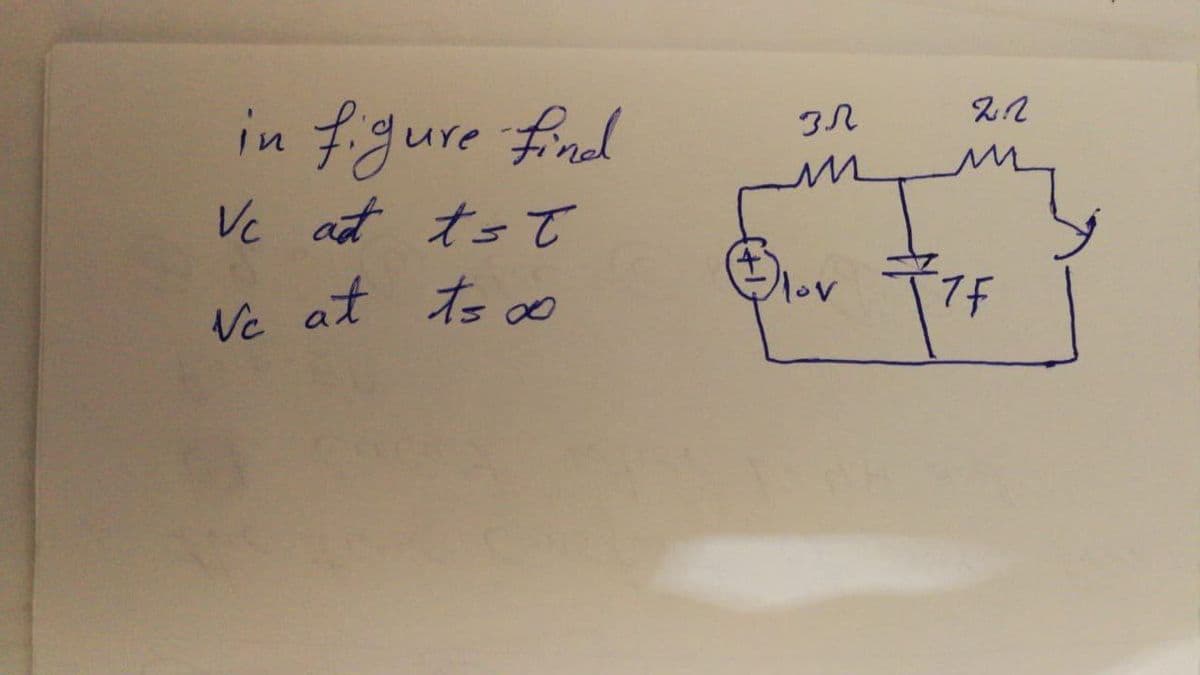 in figure find
Vc at t=τ
Vc at t=∞
3Ω
2Ω
+
-
10V
1F